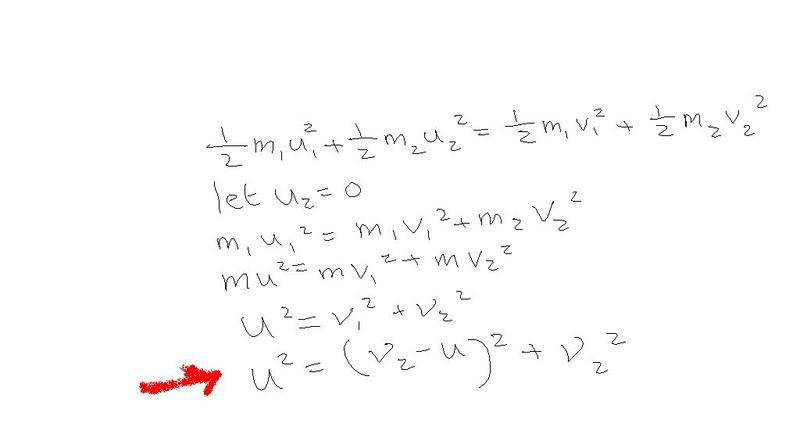 ½ m₁u₁² + ½ m₂u₂² = ½ m₁v₁² + ½ m₂v₂²
let u₂ = 0
m₁u₁² = m₁v₁² + m₂v₂²
mu² = mv₁² + mv₂²
u² = v₁² + v₂²
u² = (v₂ - u)² + v₂²